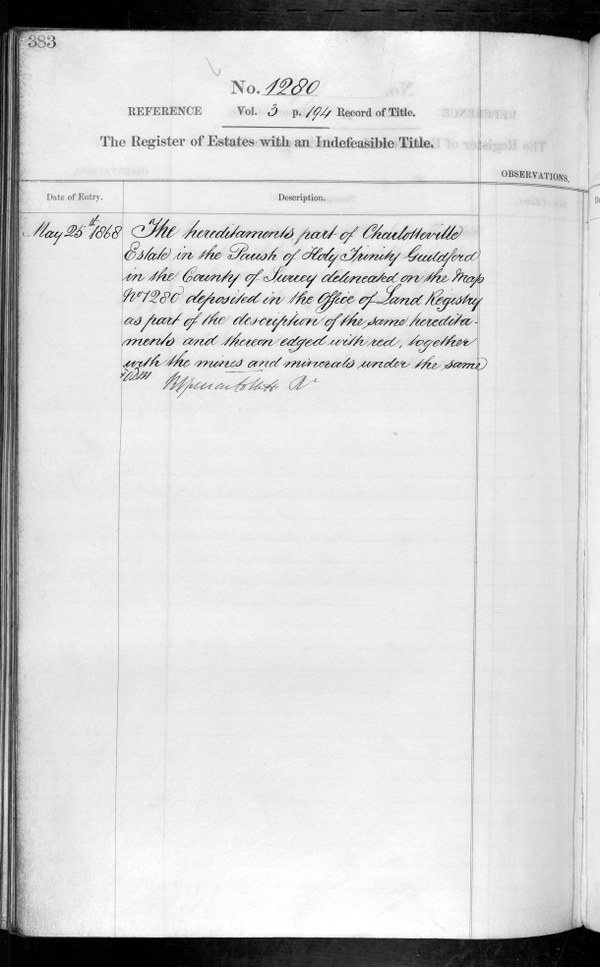 383
No. 1280
REFERENCE Vol. 3 p. 194 Record of Title.
The Register of Estates with an Indefeasible Title.
OBSERVATIONS.
Date of Entry. Description.
May 25th 1868 The hereditaments part of Charlotteville
Estate in the Parish of Holy Trinity Guildford
in the County of Surrey delineated on the Map
No 1280 deposited in the Office of Land Registry
as part of the description of the same heredita-
ments and thereon edged with red, together
with the mines and minerals under the same